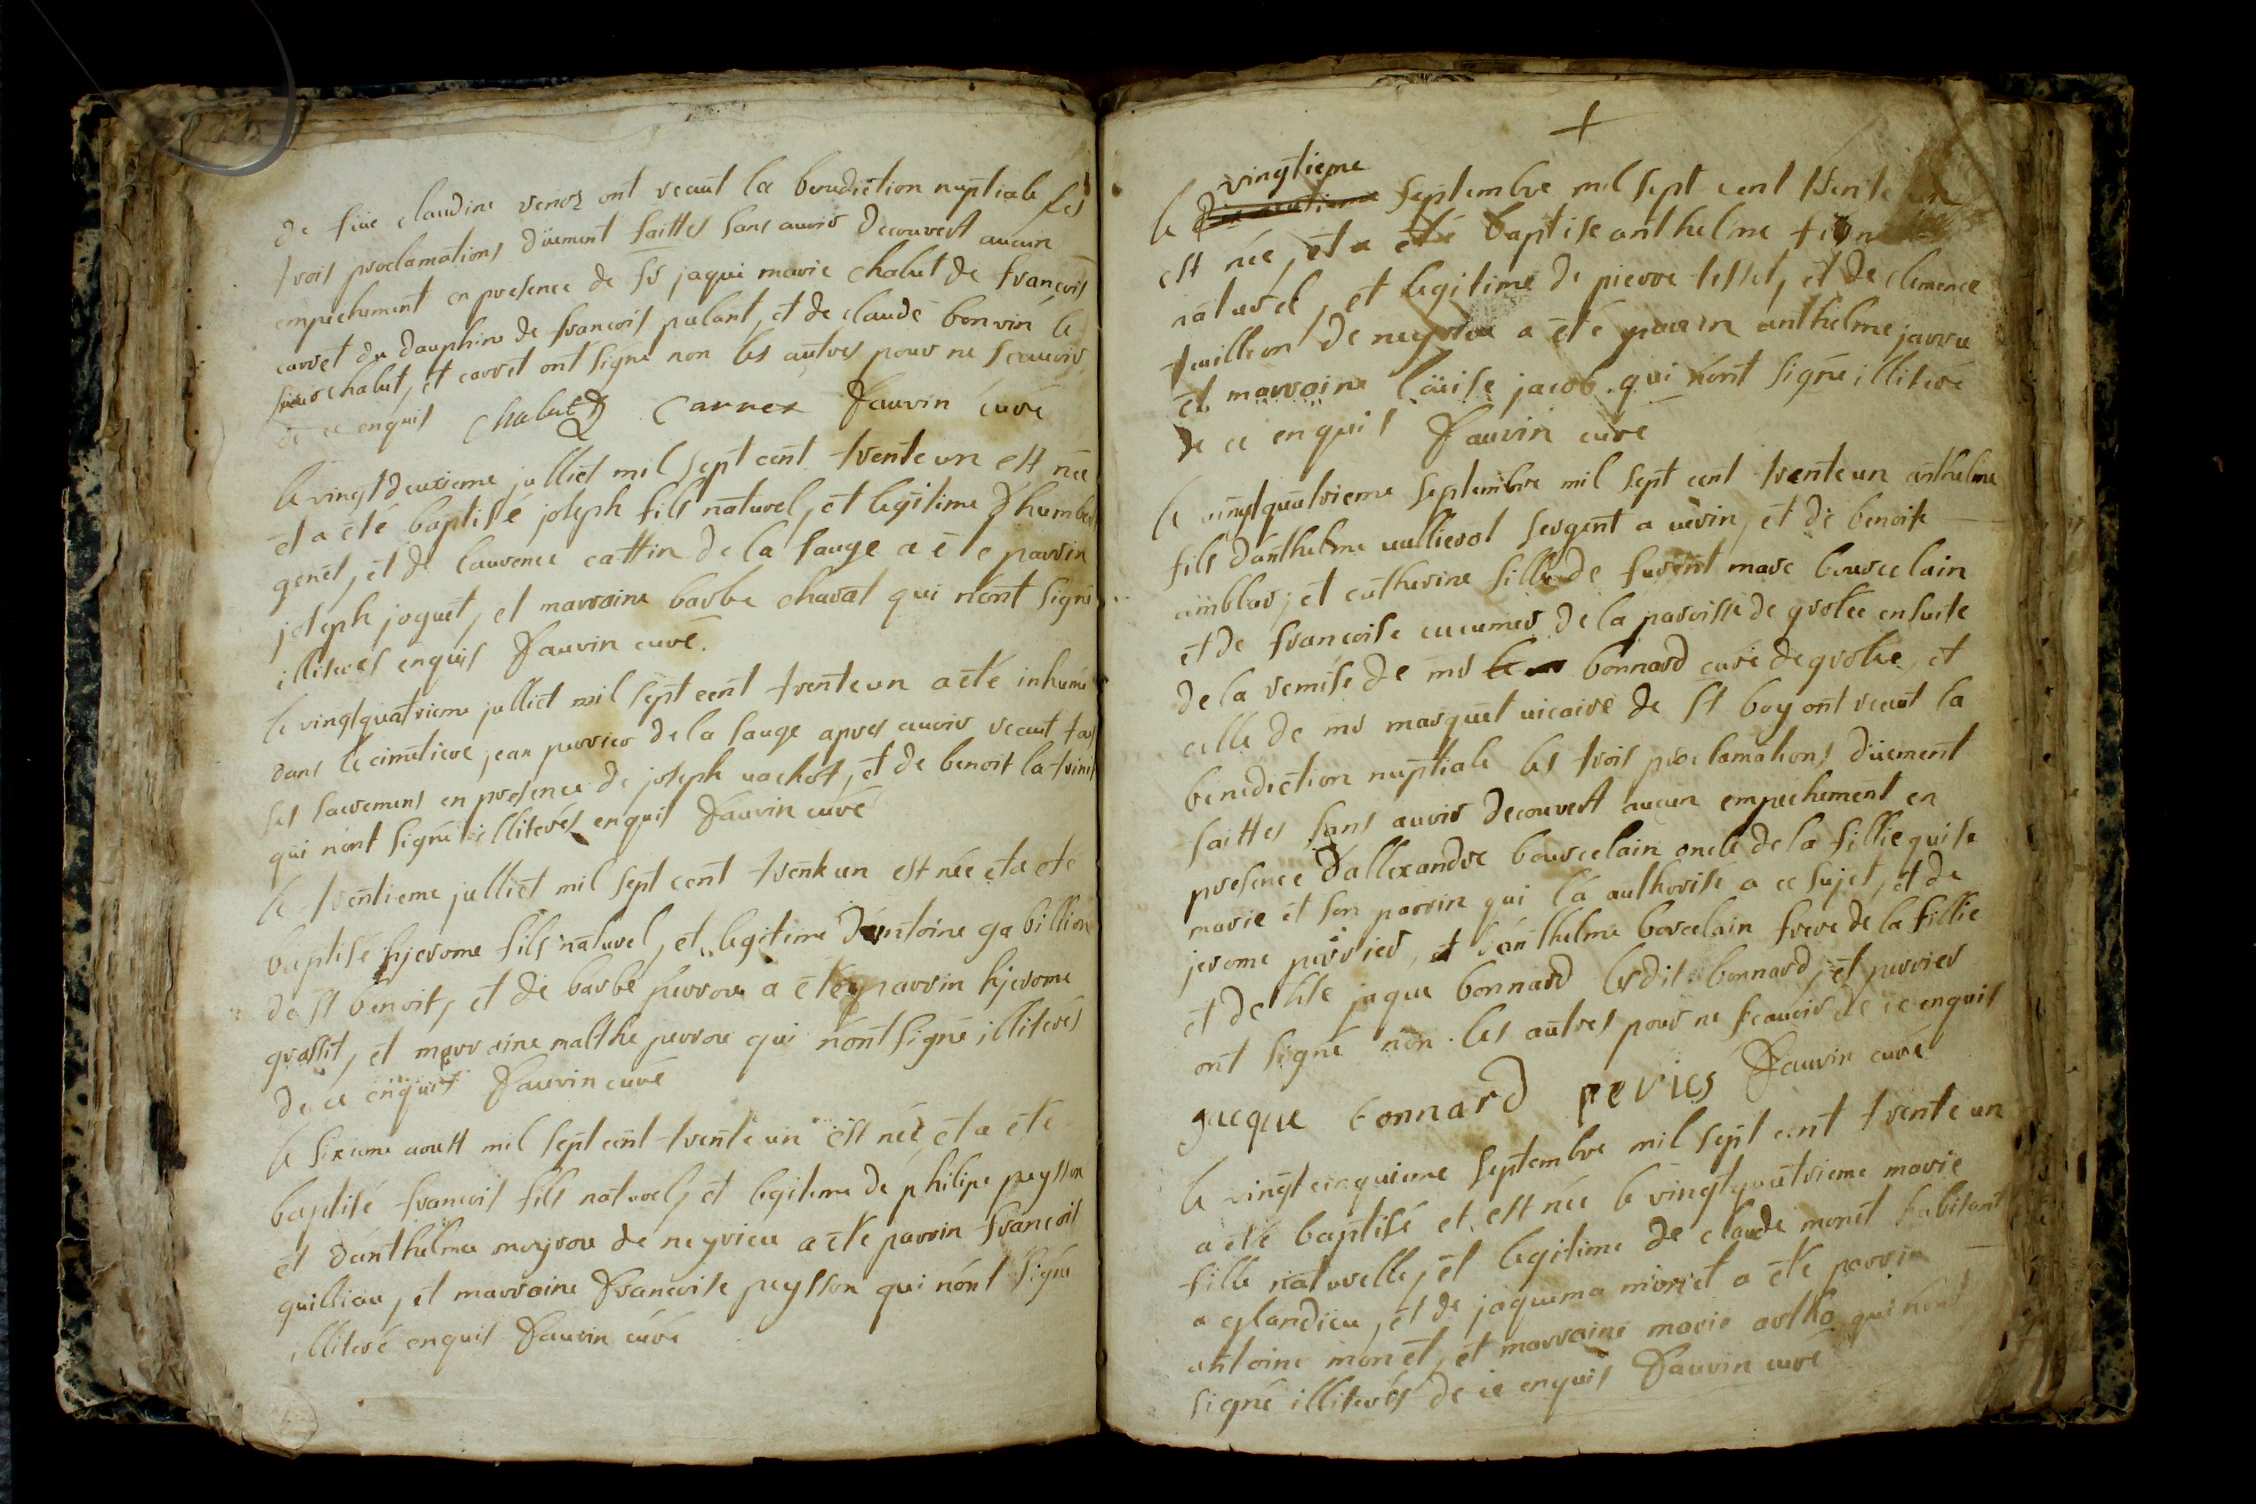 de füe claudine venoz ont recaüt la benediction nuptiale les
trois proclamations düement faittes sans auoir decouvert aucun
empechement en presence de Sr jaque marie chalut de francois
carret du dauphine de francois pulant, et de claude bonvin le
sieur chalut, et carret ont signé non les autres pour ne scauoir
de ce enquis chalut carrez Fauvin curé
le vingtdeuxieme julliet mil sept cent trente un est née
et a été baptisé joseph fils naturel, et legitime d'humber
genet, et de laurence cattin de la sauge a ete parrin
joseph joquet, et marraine barbe charat qui n'ont signé
illiterés enquis Fauvin curé.
le vingtquatrieme julliet mil sept cent trente un a eté inhumé
dans le cimetiere jean perrier de la sauge apres auoir recaut tous
ses sacremens en presence de joseph vachot, et de benoit la trini
qui n'ont signé illiterés enquis Fauvin curé
le trentieme julliet mil sept cent trente un est née et a eté
baptisé hjerome fils naturel, et legitime d'antoine gabillion
de st benoit, et de barbe perrou a été parrin hjerome
grassit, et marraine malthe perrou qui n'ont signé illiterés
de ce enquis Fauvin curé
le sixieme aoust mil sept cent trente un est née et a eté
baptisé francois fils naturel, et legitime de philipe peysson
et d'anthelma meyrou de neyrieu a eté parrin francois
quillieu, et marraine francoise peysson qui n'ont signé
illiteré enquis Fauvin curé
+
vingtieme
le septembre mil sept cent trente un
est née, et a été baptise anthelme
naturel, et legitime de pierre tesset, et de clemence
tuillion de neyrieu a été parrin anthelme jarru
et marraine loüise jacob qui n'ont signé illiteré
de ce enquis Fauvin curé
le vingtquatrieme septembre mil sept cent trente un anthelme
fils d'anthelme vullierot sergent a verin, et de benoite
amblar, et catherine fille de furent marc bourcelain
et de francoise cucumer de la paroisse de grolée ensuite
de la remise de mr bonnard curé de grolée, et
celle de mr marquet vicaire de st boy ont recaüt la
benediction nuptiale les trois proclamations düement
faittes sans auoir decouvert aucun empechement en
presence d'allexandre bourcelain oncle de la fillie qui se
marie et son parrin qui l'a authorise a ce sujet, et de
jerome perrier, et d'anthelme borcelain frere de la fillie
et de hte jaque bonnard lesdit bonnard, et perrier
ont signé non les autres pour ne scauoir de ce enquis
jacque bonnard perier Fauvin curé
le vingtcinquieme septembre mil sept cent trente un
a eté baptisé et est née le vingtquatrieme marie
fille naturelle, et legitime de claude monet habitant
a glandieu, et de jaquema morjet a eté parrin
antoine monet, et marraine marie artho qui n'ont
signé illiterés de ce enquis Fauvin curé